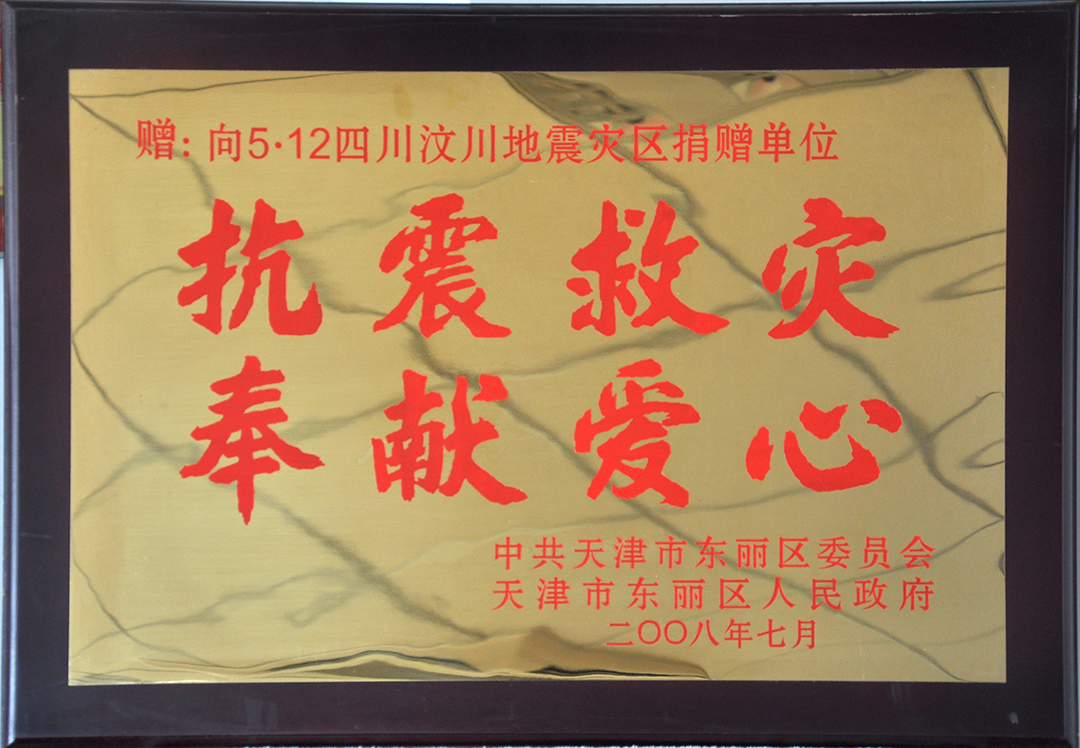 赠：向5·12四川汶川地震灾区捐赠单位
抗震救灾
奉献爱心
中共天津市东丽区委员会
天津市东丽区人民政府
二〇〇八年七月